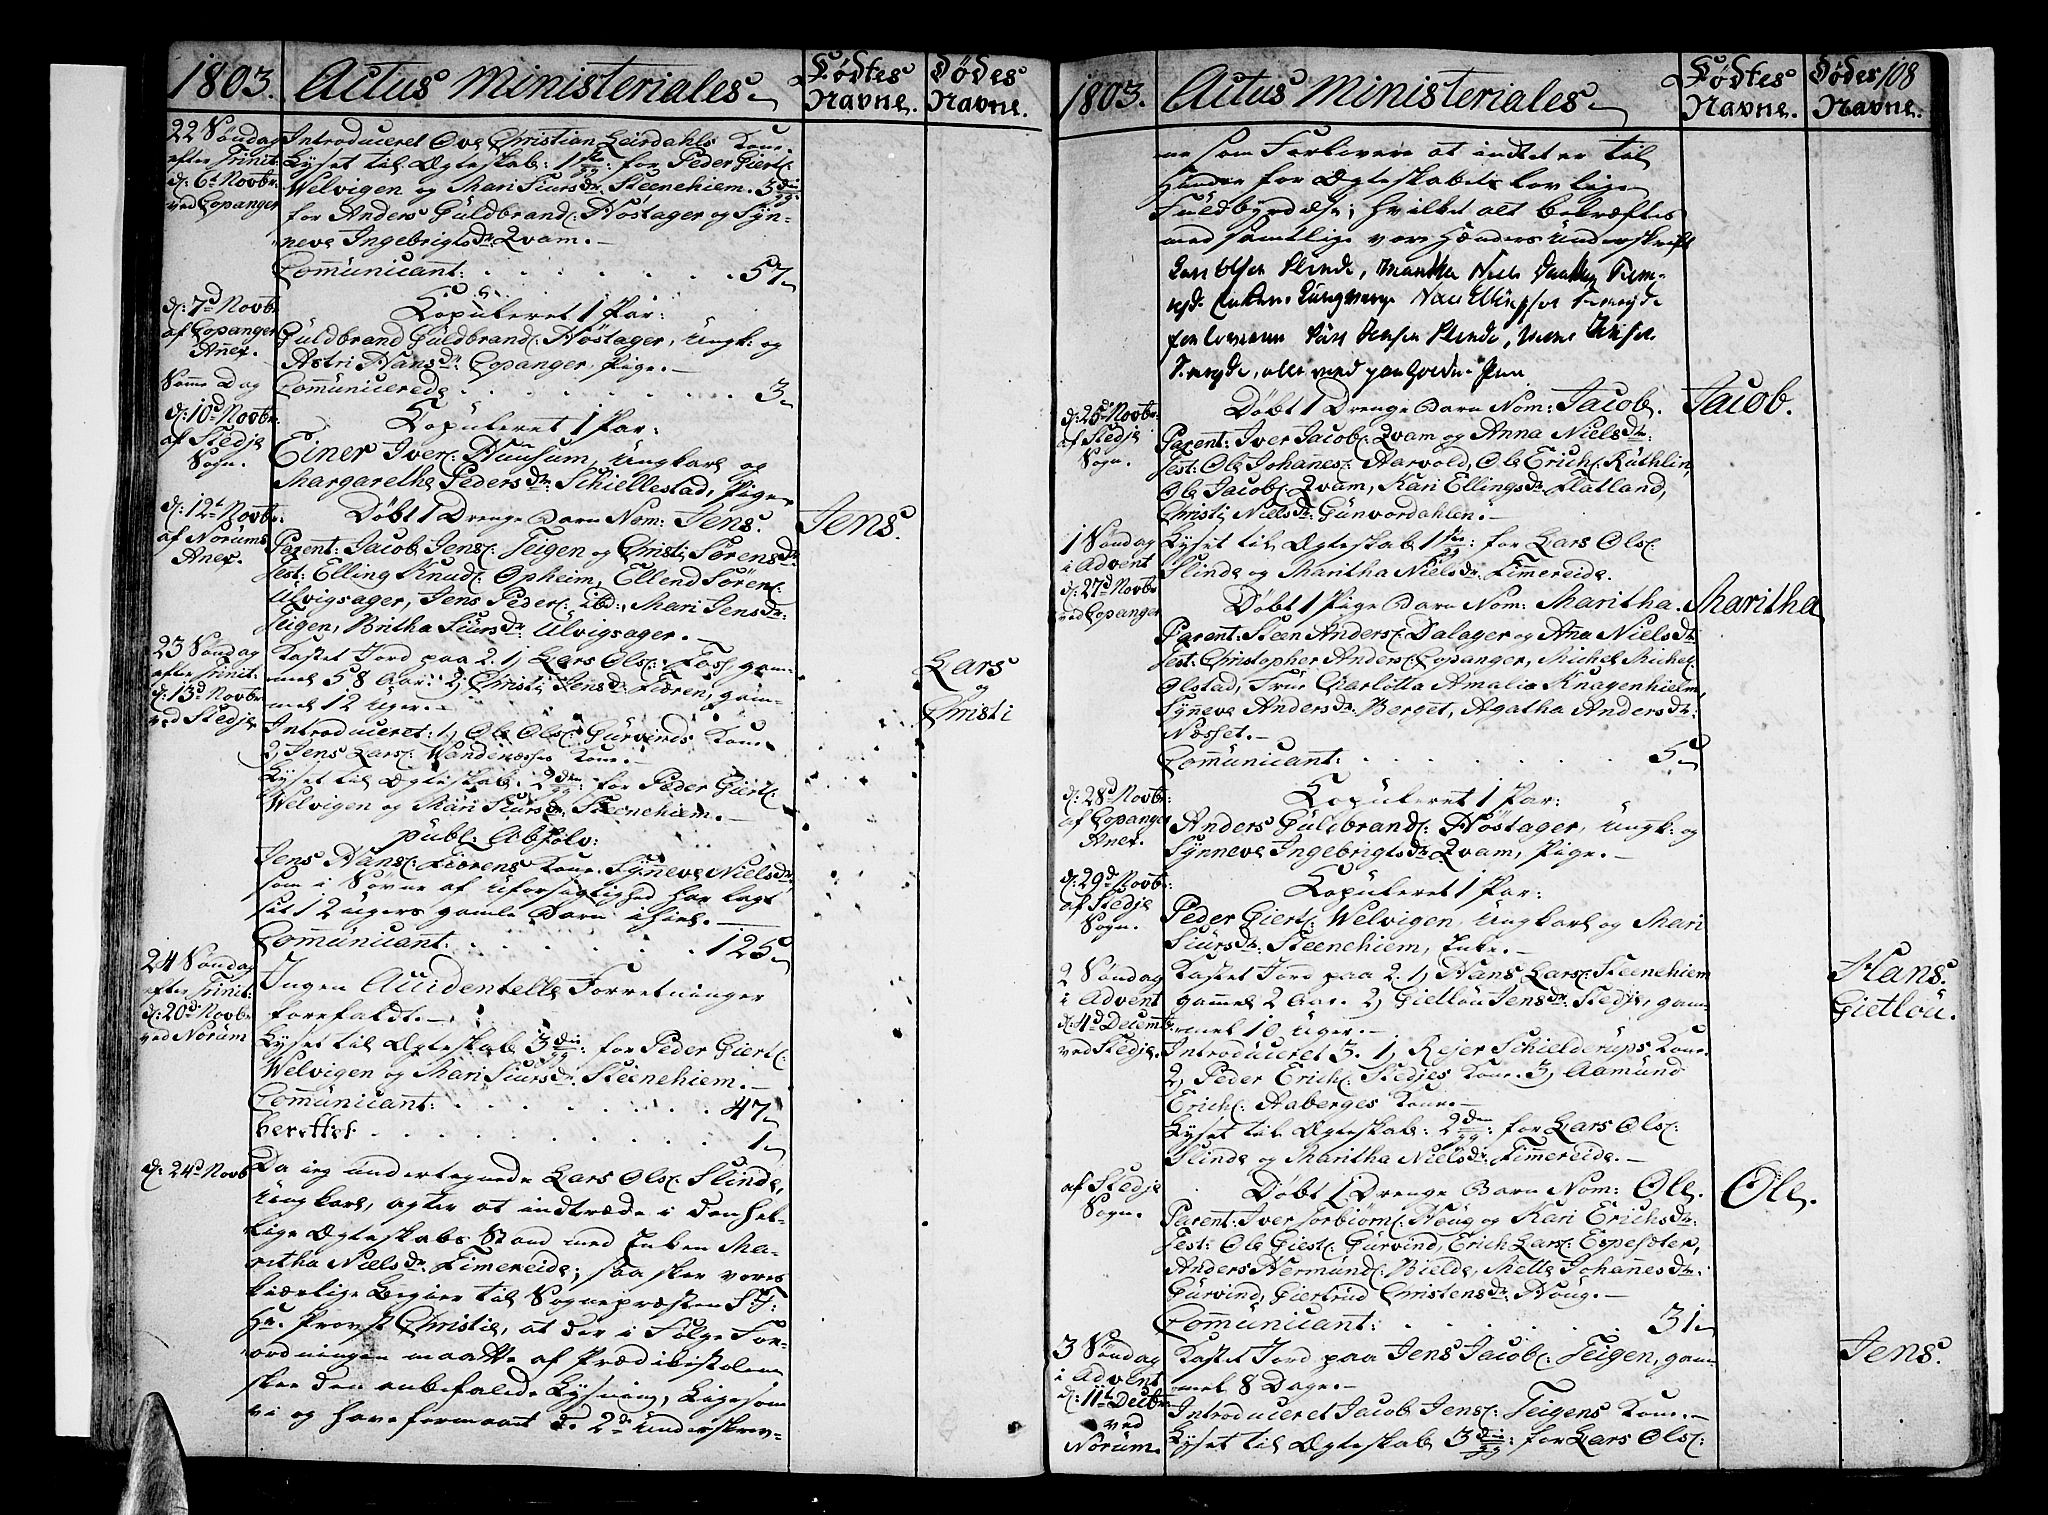 1803. Actus Ministeriales. Fødtes Navne. Dødes Navne.
22 Søndag efter Trinit: d: 6t Novbr ved Copanger
Introduceret Ove Christian Leirdahls Kone.
Lyset til Ægteskab: 1ste gg: for Peder Giertſ:
Welvigen og Mari Siursdr: Steenehiem. 3die gg:
for Anders Guldbrandſ: Høstager og Syn-
neve Ingebrigtsdr: Qvam.
Comunicant: . . . 57
d: 7d Novbr af Copanger Anex.
Kopuleret 1 Par:
Guldbrand Guldbrandſ: Høstager, Ungk: og
Astri Hansdr: Copanger, Pige.
Samme Dag
Comunicerede . . . 3
d: 10d Novbr. af Stedje Sogn.
Kopuleret 1 Par:
Einer Iverſ: Duusum, Ungkarl og
Margaretha Pedersdr: Schiellestad, Pige
d: 12t Novbr: af Norums Anex.
Døbt 1 Drenge Barn Nom: Jens. Jens.
Parent: Jacob Jensſ: Teigen og Christi Sørensdr
Test: Elling Knudſ: Opheim, Ellend Sørenſ:
Ulvigsager, Jens Pederſ: ibd:, Mari Jensdr:
Teigen, Britha Siursdr: Ulvigsager.
23 Søndag efter Trinit: d: 13d Novbr ved Stedje
Kastet Jord paa 2. 1, Lars Olsſ: Foss, gam- Lars
mel 58 Aar. 2, Christi Jensdr: Fieren, gam- og
mel 12 Uger. Christi
Introduceret: 1, Ole Olsſ: Gurvinds Kone
2, Jens Larsſ: Wandenæsses Kone.
Lyset til Ægteskab: 2den gg: for Peder Giertſ:
Welvigen og Mari Siursdr: Steenehiem.
publ: Absolv:
Jens Hansſ: Fierens Kone Synneve Nielsdr
som i Søvne af Uforsigtighed har lagt
set 12 Ugers gamle Barn ihiel.
Comunicant: . . . 125
24 Søndag efter Trinit: d: 20d Novbr ved Norum
Ingen Accidentelle Forretninger
forefaldt.
Lyset til Ægteskab 3die gg: for Peder Giertſ:
Welvigen og Mari Siursdr: Steenehiem.
Comunicant: . . . 47
berettet . . . 1
d: 24d Novb
Da jeg undertegnede Lars Olsſ: Slinde,
Ungkarl, agter at indtræde i den hel-
lige Ægteskabs Stand med Enken Ma-
ritha Nielsdr: Fimereide; saa sker vores
kierlige Begier til Sognepræsten S:T:
Hr. Provst Christie, at der i Følge For-
ordningen maatte af Prædikestolen
skee den anbefalede Lysning, Ligesom
vi og have formaaet de 2de underskrev-
1803. Actus Ministeriales. Fødtes Navne. Dødes Navne. 108
ne som Forlovere at indtet er til
Hinder for Ægteskabets lovlige
Fuldbyrdelse; hvilket alt bekræftes
med samtlige vore Hænders Underskrift
Lars olsen Slinde, Maritha Niels Daatter Fime-
Slinde,
d: 25d Novbr. af Stedje Sogn.
Døbt 1 Drenge Barn Nom: Jacob. Jacob.
Parent: Iver Jacobſ: Qvam og Anna Nielsdr:
Test: Ole Johanesſ: Aarvold, Ole Erichſ: Ruthlin,
Ole Jacobſ: Qvam, Kari Ellingsdr: Flatland,
Christi Nielsdr: Gunvordahlen.
1 Søndag i Advent d: 27d Novbr ved Copanger
Lyset til Ægteskab 1ste gg: for Lars Olsſ:
Slinde og Maritha Nielsdr: Fimereide.
Døbt 1 Pige Barn Nom: Maritha. Maritha
Parent: Steen Andersſ: Dalager og Ana Nielsdr
Test: Christopher Andersſ: Copanger, Michel Michelſ:
Olstad, Frue Charlotta Amalia Knagenhielm,
Synneve Andersdr: Berget, Agatha Andersdr:
Næsset.
Comunicant: . . . 5
d: 28d Novbr: af Copanger Anex.
Kopuleret 1 Par:
Anders Guldbrandſ: Høstager, Ungk: og
Synneve Ingebrigtsdr: Qvam, Pige.
d: 29d Novbr: af Stedje Sogn.
Kopuleret 1 Par:
Peder Giertſ: Welvigen, Ungkarl og Mari
Siursdr: Steenehiem, Enke.
2 Søndag i Advent d: 4d Decembr: ved Stedje.
Kastet Jord paa 2. 1, Hans Larsſ: Steenehiem Hans.
gammel 2 Aar. 2, Gietlou Jensdr: Stedje, gam- Gietlou.
mel 10 Uger.
Introduceret 3. 1, Rejer Schielderups Kone
2, Peder Erichſ: Stedjes Kone. 3, Aamund
Erichſ: Aaberges Kone.
Lyset til Ægteskab: 2den gg: for Lars Olsſ:
Slinde og Maritha Nielsdr: Fimereide.
af Stedje Sogn.
Døbt 1 Drenge Barn Nom: Ole. Ole.
Parent: Iver Torbiørnſ: Houg og Kari Erichsdr:
Test: Ole Giestſ: Gurvind, Erich Larsſ: Espesæter,
Anders Hermundſ: Bielde, Mette Johanesdr:
Gurvind, Giertrud Christensdr: Houg.
Comunicant: . . . 31
3 Søndag i Advent d: 11t Decbr: ved Norum.
Kastet Jord paa Jens Jacobſ: Teigen, gam- Jens.
mel 8 Dage.
Introduceret Jacob Jensſ: Teigens Kone.
Lyset til Ægteskab 3die gg: for Lars Olsſ: